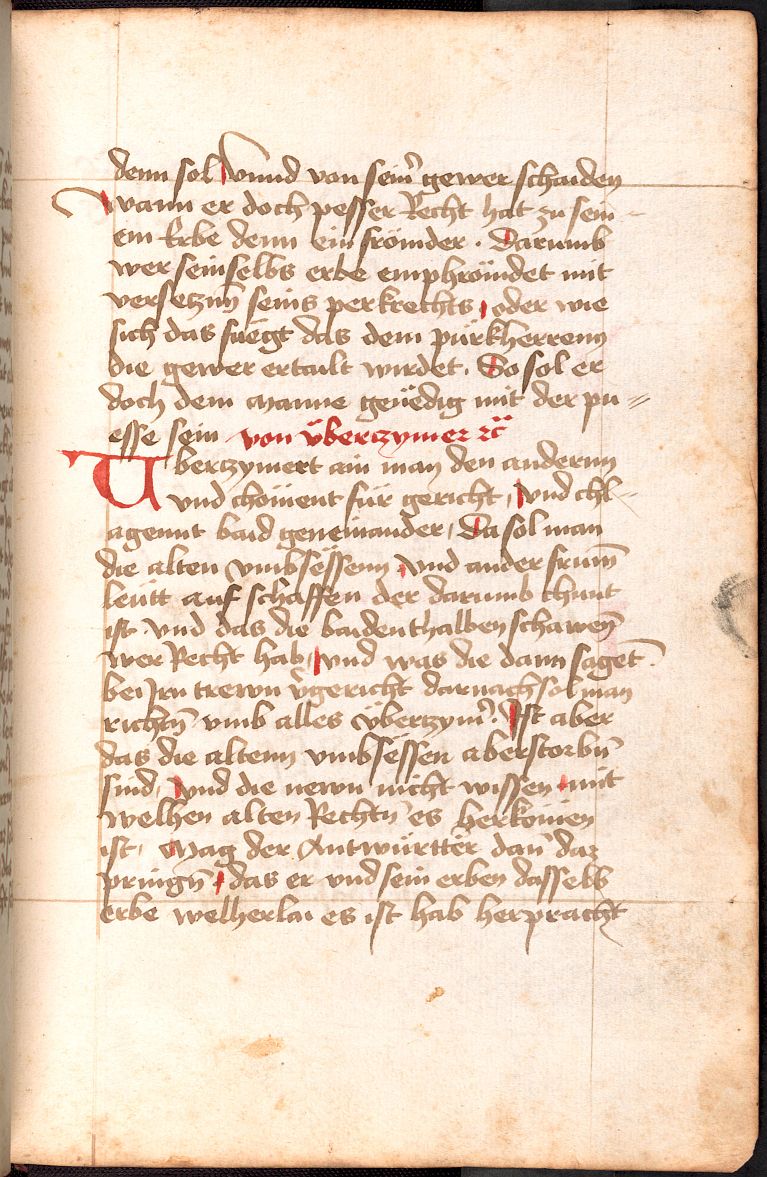 denn sol Vnnd von sein̄ gewer schaiden
wann er doch pesser Recht hat zu sein
em Erbe denn ein frömder . Darumb
wer seinselbs erbe emphrömdet mit
versetzn̄ seins perkrechts , oder wie
sich das fuegt das dem purkherrenn
die gewer ertailt wirdet . So sol er
doch dem Manne genedig mit der pu=
esse sein von überczymer ꝛc̄
Uberczymert ain man den andernn
vnd chöment für gericht , vnd chl=
agennt baid geneinander , Da sol man
die alten vmbsëssenn , vnd ander frum̄
leütt auf schaffen der darumb chunt
ist . vnd das die baidenthalben schawen̄
wer Recht hab , vnd was die dann saget .
bei Irn trewn v̄gericht darnach sol man
richtn̄ vmb alles überczym̄ . Ist aber
das die altenn vmbsëssen aberstorbn̄
sind , vnd die newn nicht wissen , mit
welhen alten Rechtn̄ es herkomen
ist , Mag der Antwürtter dan̄ daz
pringn̄ , das er vnd sein erben dasselb
erbe welherlai es ist hab herpracht